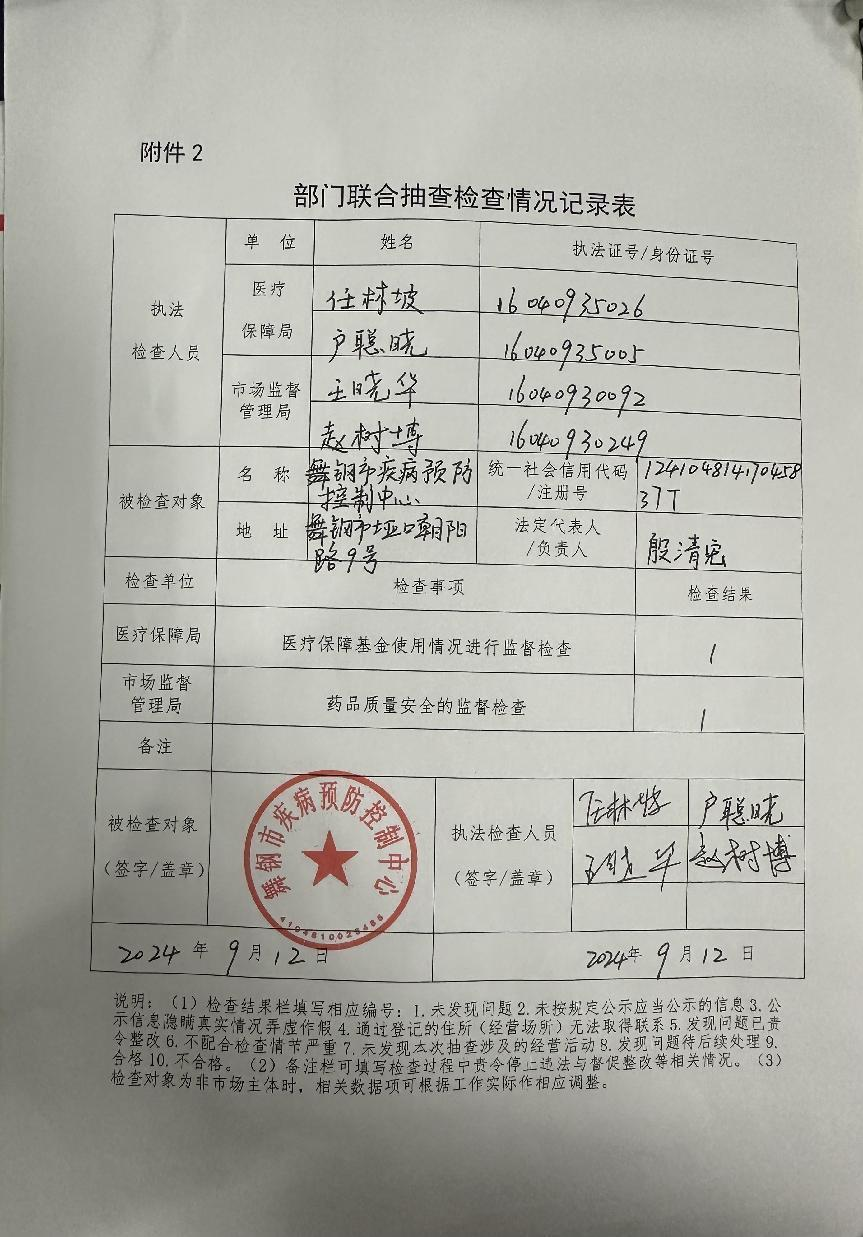 附件2
部门联合抽查检查情况记录表
执法
检查人员
单 位
姓名
执法证号/身份证号
医疗
保障局
任林坡
16040935026
户聪晓
16040935005
市场监督
管理局
王晓华
16040930092
赵树博
16040930249
被检查对象
名 称
舞钢市疾病预防
控制中心
统一社会信用代码
/注册号
124104814170458
37T
地 址
舞钢市垭口朝阳
路9号
法定代表人
/负责人
殷清宪
检查单位
检查事项
检查结果
医疗保障局
医疗保障基金使用情况进行监督检查
1
市场监督
管理局
药品质量安全的监督检查
1
备注
被检查对象
(签字/盖章)
舞钢市疾病预防控制中心
执法检查人员
(签字/盖章)
任林坡
户聪晓
王晓华
赵树博
2024年9月12日
2024年9月12日
说明:(1)检查结果栏填写相应编号:1.未发现问题2.未按规定公示应当公示的信息3.公
示信息隐瞒真实情况弄虚作假4.通过登记的住所(经营场所)无法取得联系5.发现问题已责
令整改6.不配合检查情节严重7.未发现本次抽查涉及的经营活动8.发现问题待后续处理9.
合格10.不合格。(2)备注栏可填写检查过程中责令停止违法与督促整改等相关情况。(3)
检查对象为非市场主体时,相关数据项可根据工作实际作相应调整。